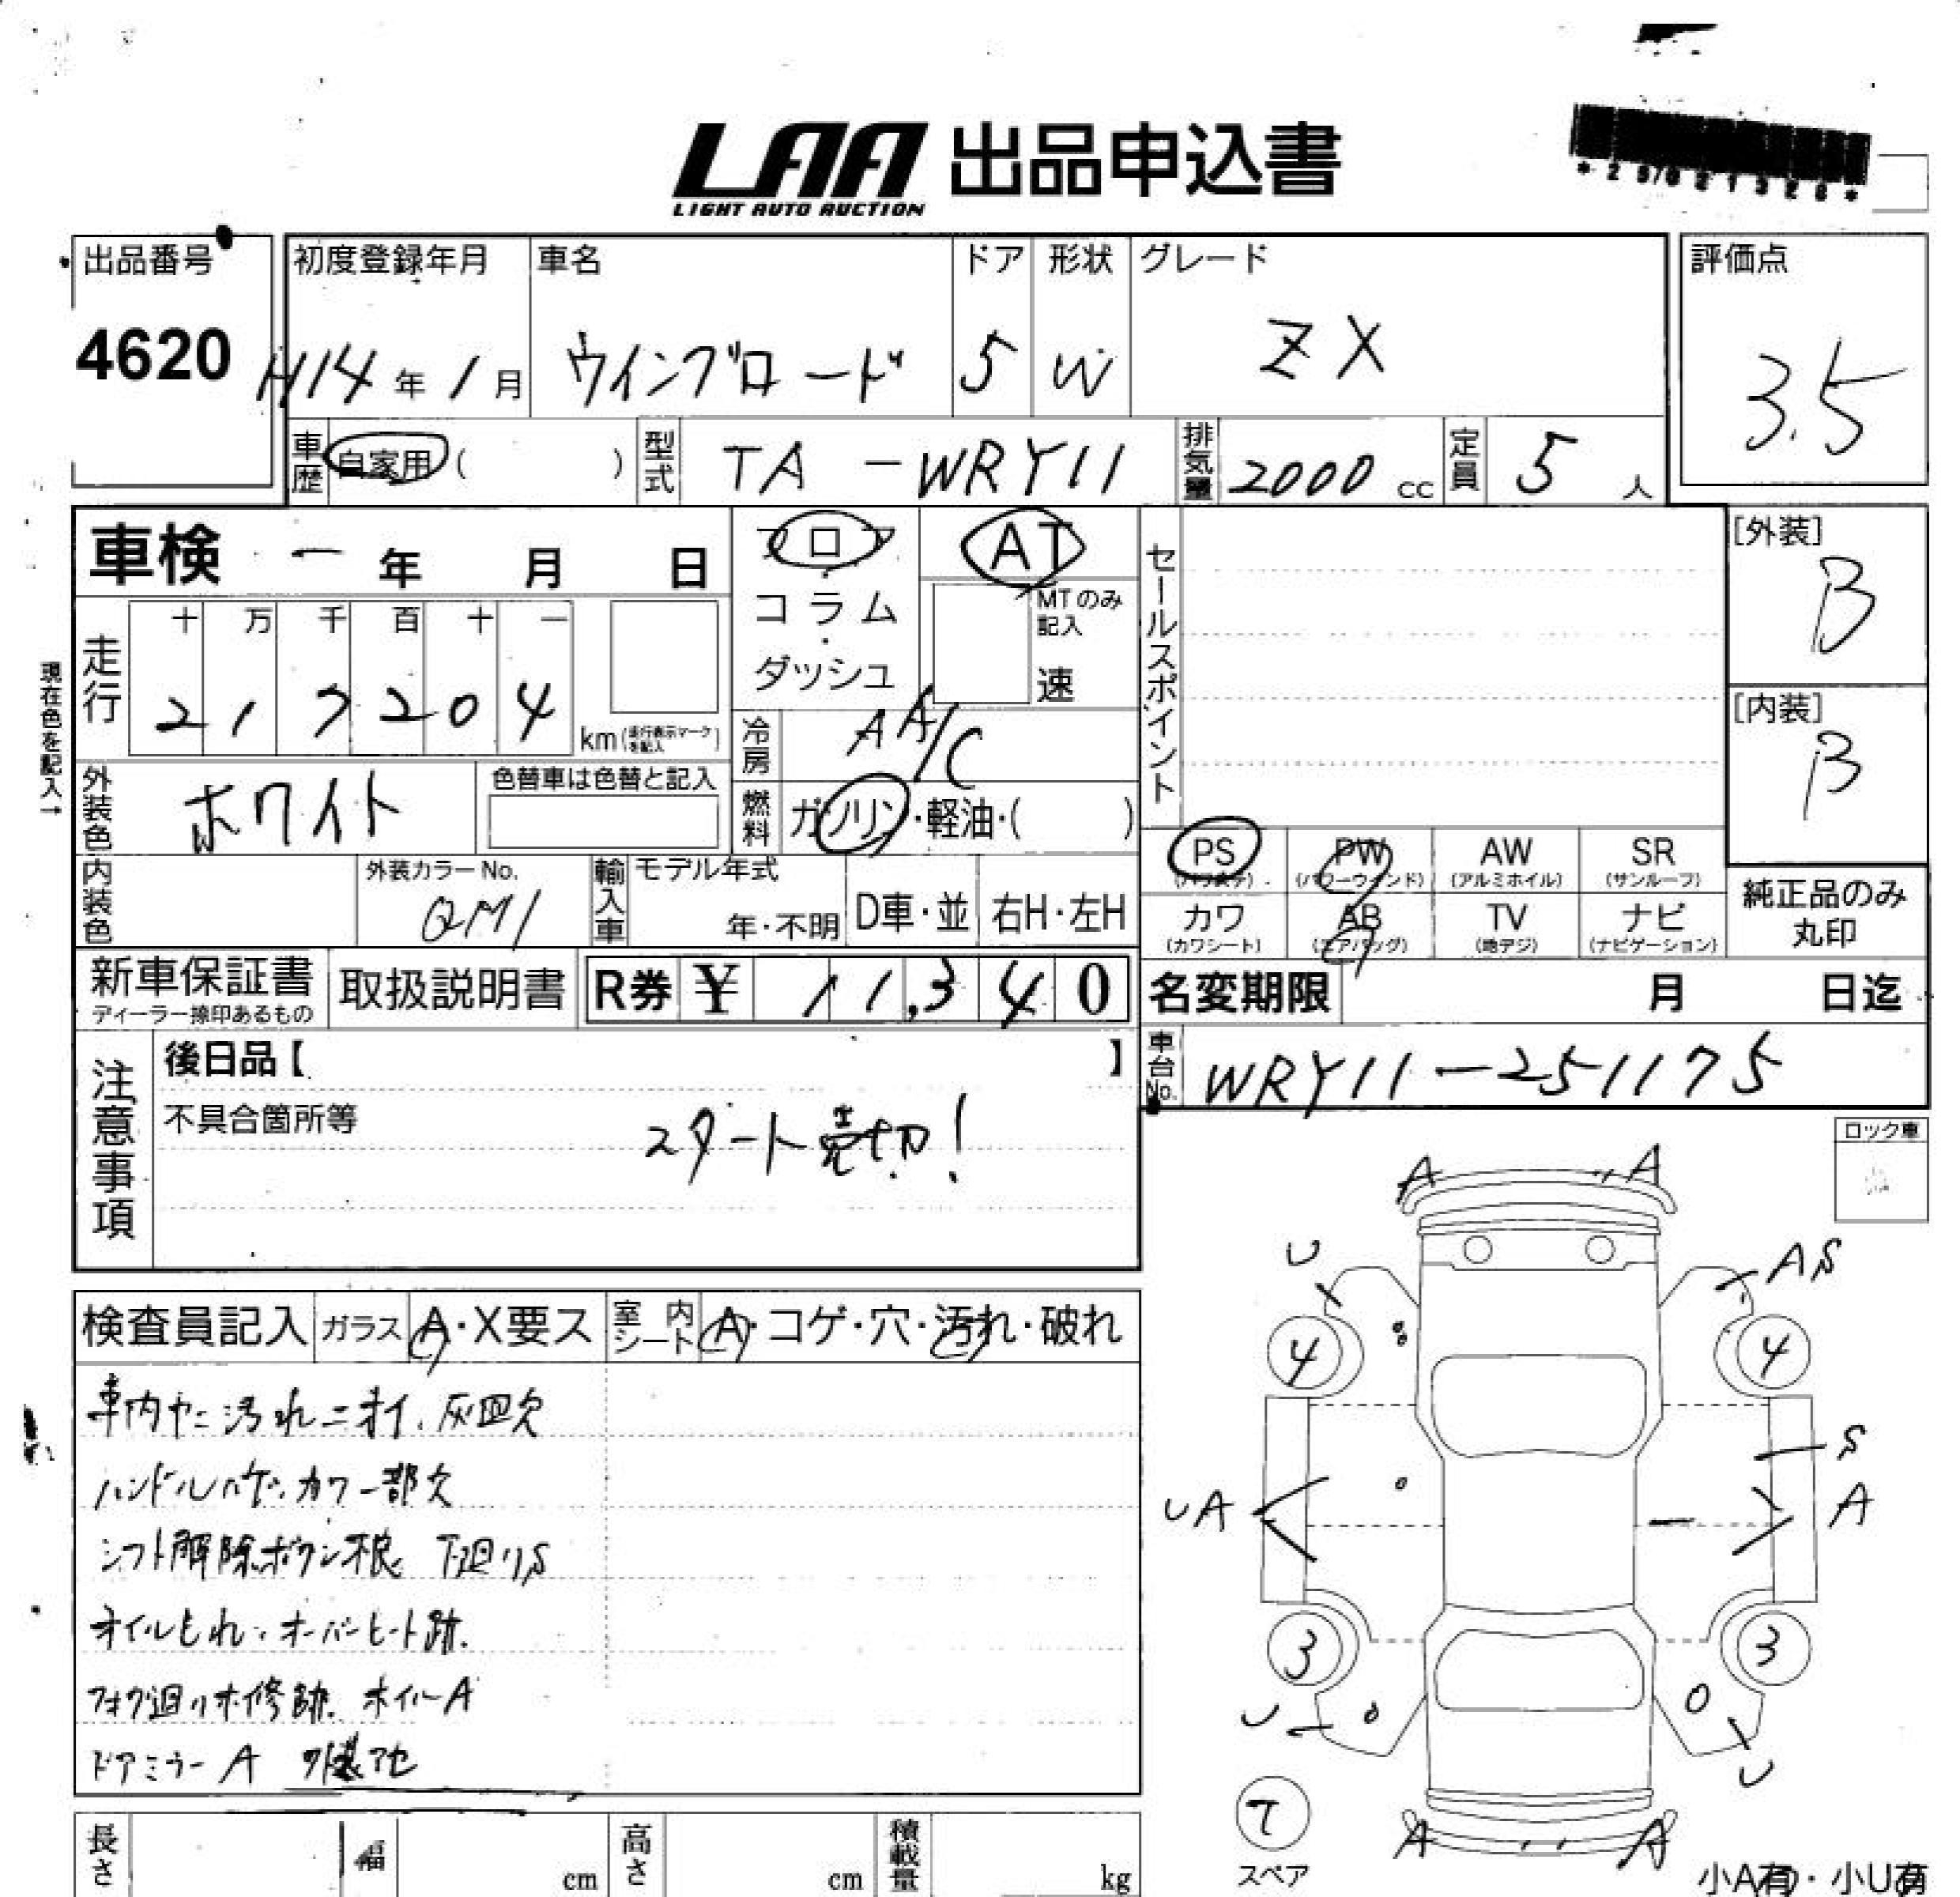 LAA 出品申込書
LIGHT AUTO AUCTION
出品番号 初度登録年月 車名 ドア 形状 グレード 評価点
4620 H14年1月 ウイングロード 5 W ZX 3.5
車歴 自家用( ) 型式 TA-WRY11 排気量 2000cc 定員 5人
車検 - 年 月 日 フロア AT セールスポイント [外装]
・コラム MTのみ記入 B
・ダッシュ 速
十 万 千 百 十 一
現在色を記入→ 走行 2 1 7 2 0 4 km(走行表示マークを記入) 冷房 AA/C [内装]
B
外装色 ホワイト 色替車は色替と記入 燃料 ガソリン・軽油・( )
PS PW AW SR
(パワステ) (パワーウィンド) (アルミホイル) (サンルーフ)
内装色 外装カラーNo. QM1 輸入車 モデル年式 年・不明 D車・並 右H・左H
カワ AB TV ナビ 純正品のみ丸印
(カワシート) (エアバッグ) (地デジ) (ナビゲーション)
新車保証書 取扱説明書 R券 ¥ 11,340 名変期限 月 日迄
ディーラー捺印あるもの
注意事項 後日品【 】 車台No. WRY11-251175
不具合箇所等 スタート売切!
ロック車
A A
U AS
4 4
S
UA A
3 3
U U
T
スペア
A A
小A有・小U有
検査員記入 ガラス A・X要ス 室内シート A・コゲ・穴・汚れ・破れ
車内ヤニ汚れニオイ、灰皿欠
ハンドルハゲ、カワ一部欠
シフト解除ボタン不良 下廻りS
オイルもれ、オーバーヒート跡.
廻り補修跡. ホイルA
ドアミラーA 外装アセ
長さ 幅 cm 高さ cm 積載量 kg